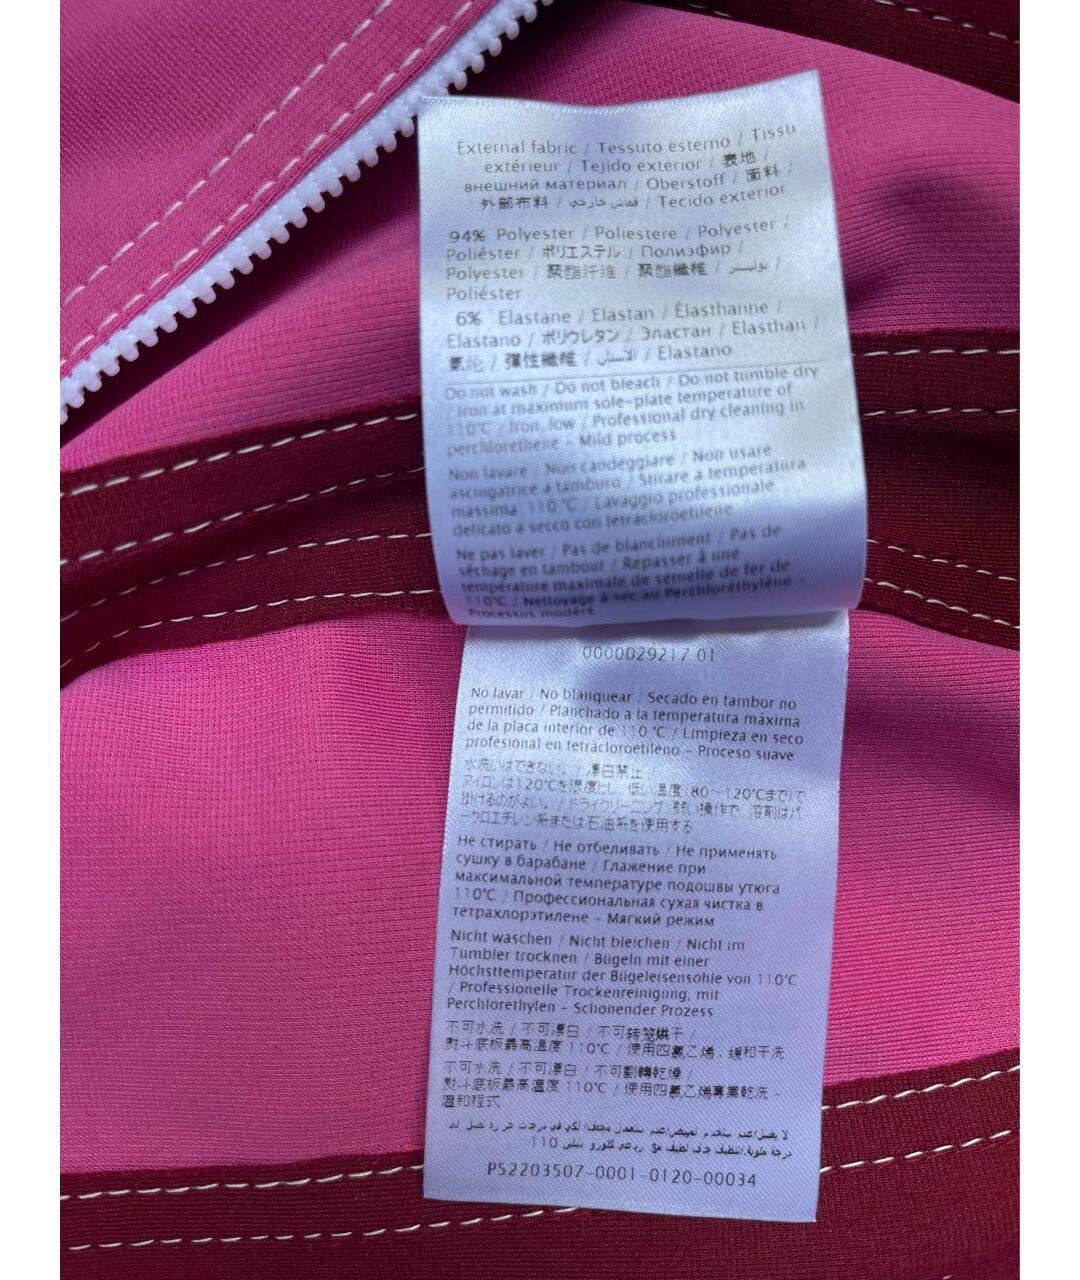 External fabric / Tessuto esterno / Tissu
extérieur / Tejido exterior / 表地 /
внешний материал / Oberstoff / 面料 /
外部布料 / قماش خارجي / Tecido exterior
94% Polyester / Poliestere / Polyester /
Poliéster / ポリエステル / Полиэфир /
Polyester / 聚酯纤维 / 聚酯纖維 / بوليستر /
Poliéster
6% Elastane / Elastan / Élasthanne /
Elastano / ポリウレタン / Эластан / Elasthan /
氨纶 / 彈性纖維 / الأستان / Elastano
Do not wash / Do not bleach / Do not tumble dry
/ Iron at maximum sole-plate temperature of
110°C / Iron, low / Professional dry cleaning in
perchlorethene - Mild process
Non lavare / Non candeggiare / Non usare
asciugatrice a tamburo / Stirare a temperatura
massima 110 °C / Lavaggio professionale
delicato a secco con tetracloroetilene
Ne pas laver / Pas de blanchiment / Pas de
séchage en tambour / Repasser à une
température maximale de semelle de fer de
110°C / Nettoyage à sec au Perchloréthylène -
Processus modéré
0000029217 01
No lavar / No blanquear / Secado en tambor no
permitido / Planchado a la temperatura máxima
de la placa interior de 110 °C / Limpieza en seco
profesional en tetracloroetileno - Proceso suave
水洗いはできない。 / 漂白禁止
アイロンは120℃を限度とし、低い温度(80～120℃まで)で
掛けるのがよい。 / ドライクリーニング、弱い操作で、溶剤はパ
ークロエチレン系または石油系を使用する
Не стирать / Не отбеливать / Не применять
сушку в барабане / Глажение при
максимальной температуре подошвы утюга
110°C / Профессиональная сухая чистка в
тетрахлорэтилене - Мягкий режим
Nicht waschen / Nicht bleichen / Nicht im
Tumbler trocknen / Bügeln mit einer
Höchsttemperatur der Bügeleisensohle von 110°C
/ Professionelle Trockenreinigung, mit
Perchlorethylen - Schonender Prozess
不可水洗 / 不可漂白 / 不可转笼烘干 /
熨斗底板最高温度 110°C / 使用四氯乙烯，缓和干洗
不可水洗 / 不可漂白 / 不可翻轉乾燥 /
熨斗底板最高溫度 110°C / 使用四氯乙烯專業乾洗 -
溫和程式
110
P52203507-0001-0120-00034